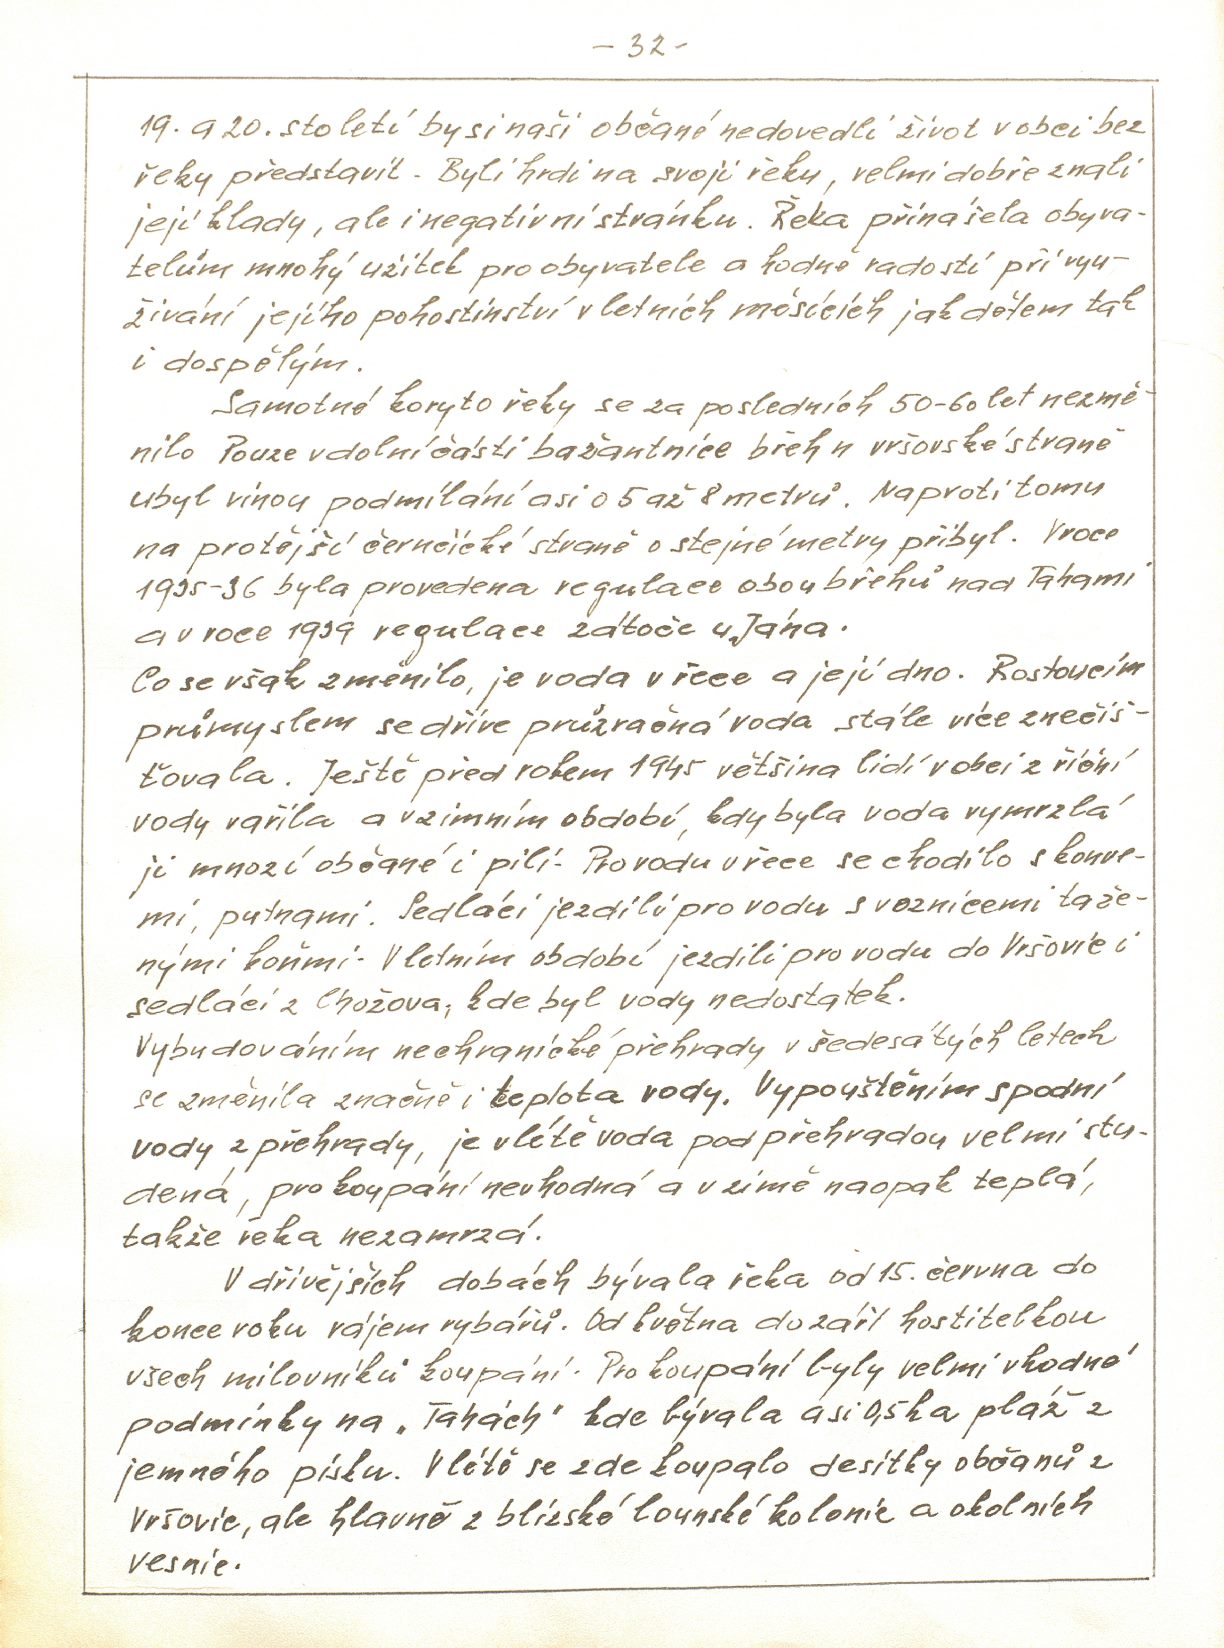 - 32 -
19. a 20. století by si naši občané nedovedli život v obci bez
řeky představit. Byli hrdi na svoji řeku, velmi dobře znali
její klady, ale i negativní stránku. Řeka přinášela obyva-
telům mnohý užitek pro obyvatele a hodně radosti při vyu-
žívání jejího pohostinství v letních měsících jak dětem tak
i dospělým.
Samotné koryto řeky se za posledních 50-60 let nezmě-
nilo Pouze v dolní části bažantnice břeh n vršovské straně
ubyl vinou podmílání asi o 5 až 8 metrů. Naproti tomu
na protější černčické straně o stejné metry přibyl. V roce
1935-36 byla provedena regulace obou břehů nad Tahami
a v roce 1939 regulace zátoče u „Jána.
Co se však změnilo, je voda v řece a její dno. Rostoucím
průmyslem se dříve průzračná voda stále více znečiš-
ťovala. Ještě před rokem 1945 většina lidí v obci z říční
vody vařila a v zimním období, kdy byla voda vymrzlá
ji mnozí občané i pili. Pro vodu v řece se chodilo s konve-
mi, putnami. Sedláci jezdili pro vodu s voznicemi taže-
nými koňmi. V letním období jezdili pro vodu do Vršovic i
sedláci z Chožova, kde byl vody nedostatek.
Vybudováním nechranické přehrady v šedesátých letech
se změnila značně i teplota vody. Vypouštěním spodní
vody z přehrady, je v létě voda pod přehradou velmi stu-
dená, pro koupání nevhodná a v zimě naopak teplá,
takže řeka nezamrzá.
V dřívějších dobách bývala řeka od 15. června do
konce roku rájem rybářů. Od května do září hostitelkou
všech milovníků koupání. Pro koupání byly velmi vhodné
podmínky na „Tahách" kde bývala asi 0,5 ha pláž z
jemného písku. V létě se zde koupalo desítky občanů z
Vršovic, ale hlavně z blízské lounské kolonie a okolních
vesnic.